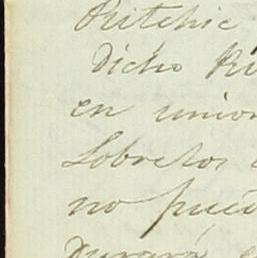 Ritchie
Dicho Ri
en union
Sobre los
no pued
Durará